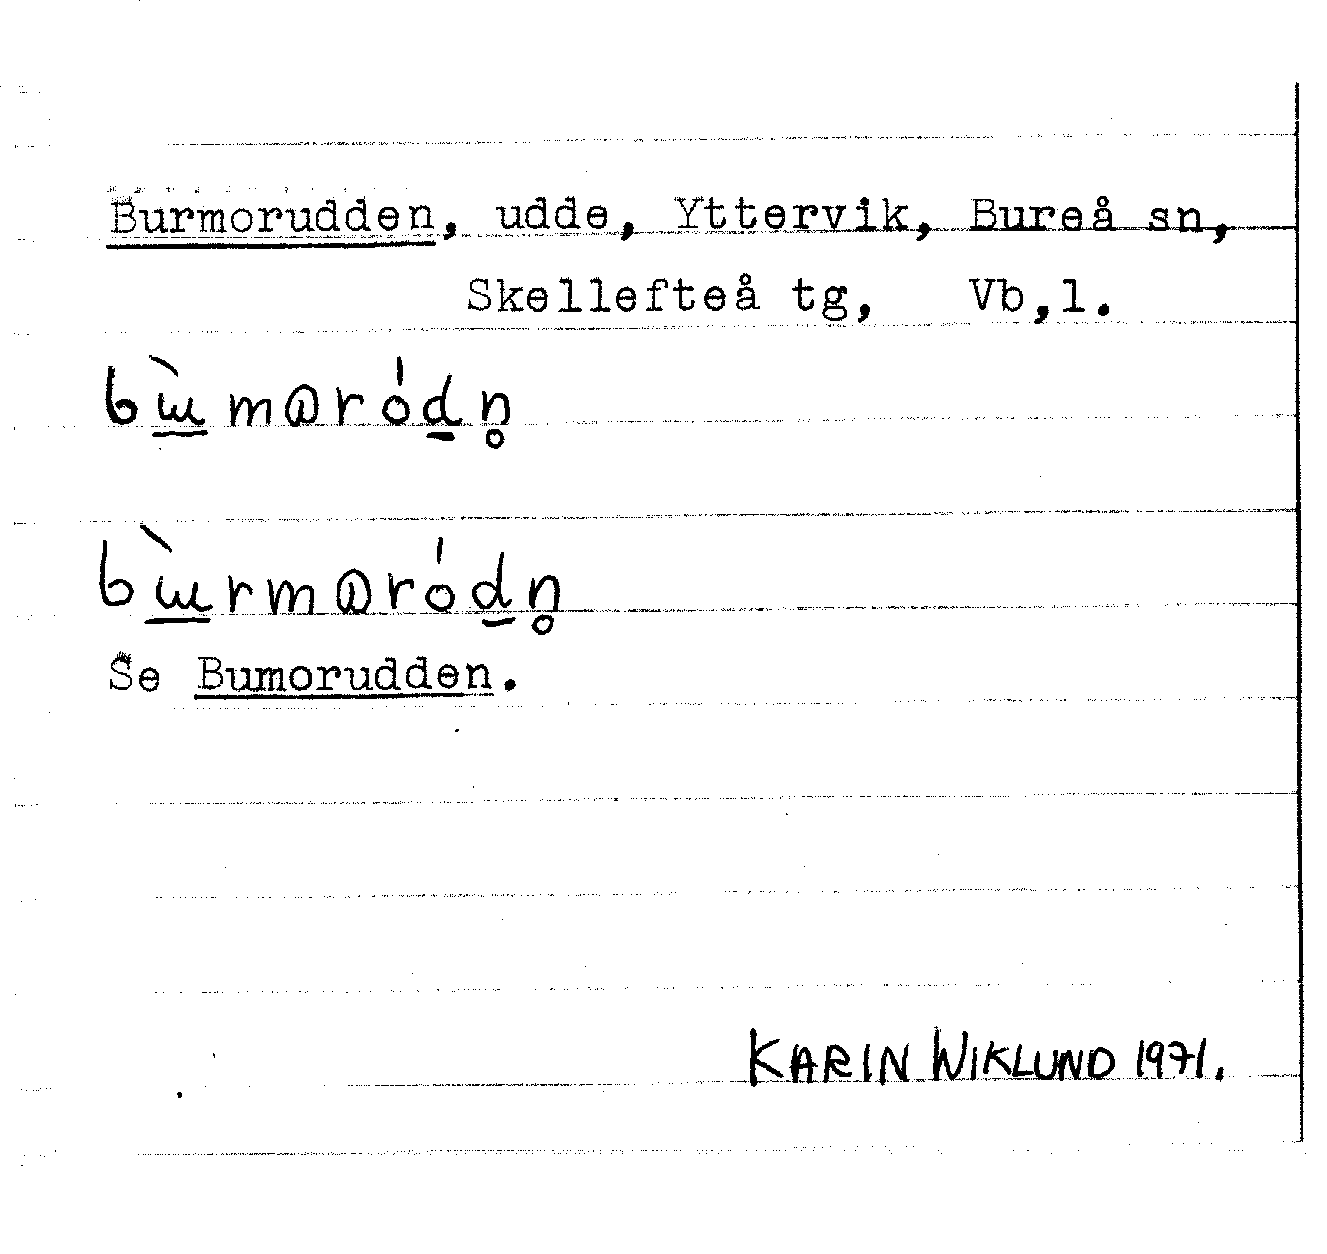 Burmorudden, udde, Yttervik, Bureå sn,
Skellefteå tg, Vb,l.
bɯ̱̀mⱺróḏn̥
bɯ̱̀rmⱺróḏn̥
Se Bumorudden.
KARIN WIKLUND 1971.